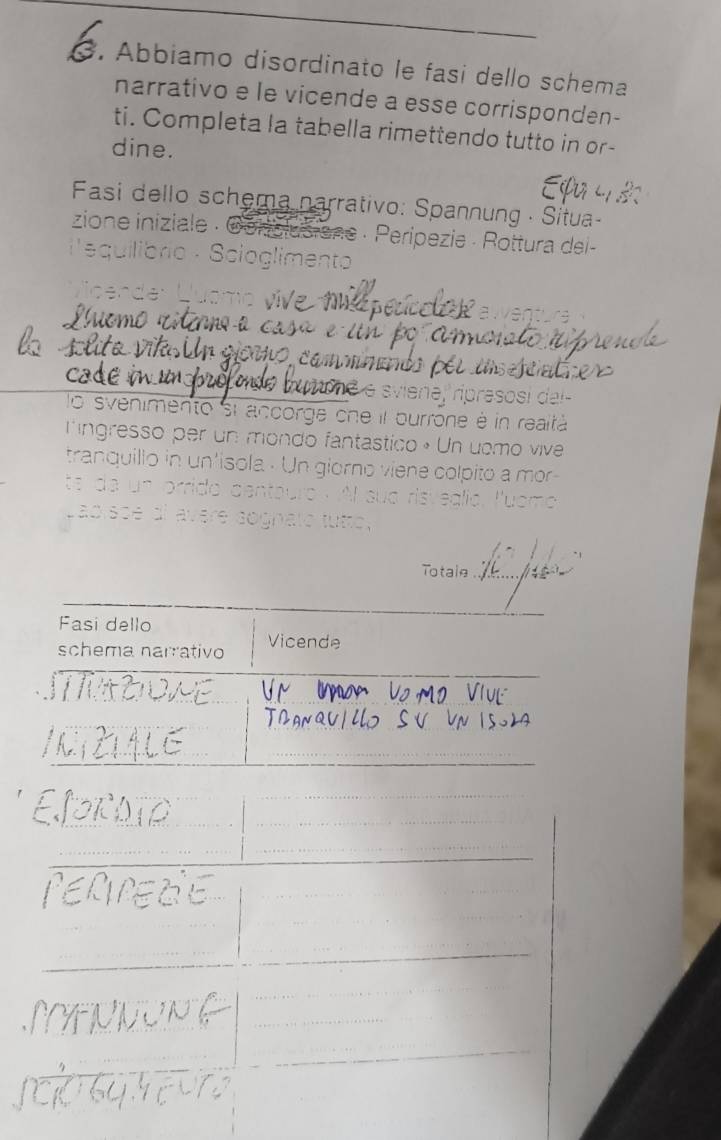 6. Abbiamo disordinato le fasi dello schema
narrativo e le vicende a esse corrisponden-
ti. Completa la tabella rimettendo tutto in or-
dine.
Fasi dello schema narrativo: Spannung · Situa-
zione iniziale · · Peripezie · Rottura del-
l'equilibrio · Scioglimento
Vicende: L'uomo vive mille pericolose avventure
L'uomo ritorna a casa e un po' annoiato riprende
la solita vita. Un giorno camminando per un sentiero
cade in un profondo burrone e sviene, ripresosi dal-
lo svenimento si accorge che il burrone è in realtà
l'ingresso per un mondo fantastico · Un uomo vive
tranquillo in un'isola · Un giorno viene colpito a mor-
te da un orrido centauro · Al suo risveglio, l'uomo
capisce di avere sognato tutto.
Totale
Fasi dello
schema narrativo
Vicende
SITUAZIONE
UN UOMO VIVE
TRANQUILLO SU UN ISOLA
INIZIALE
ESORDIO
PERIPEZIE
SPANNUNG
SCIOGLIMENTO